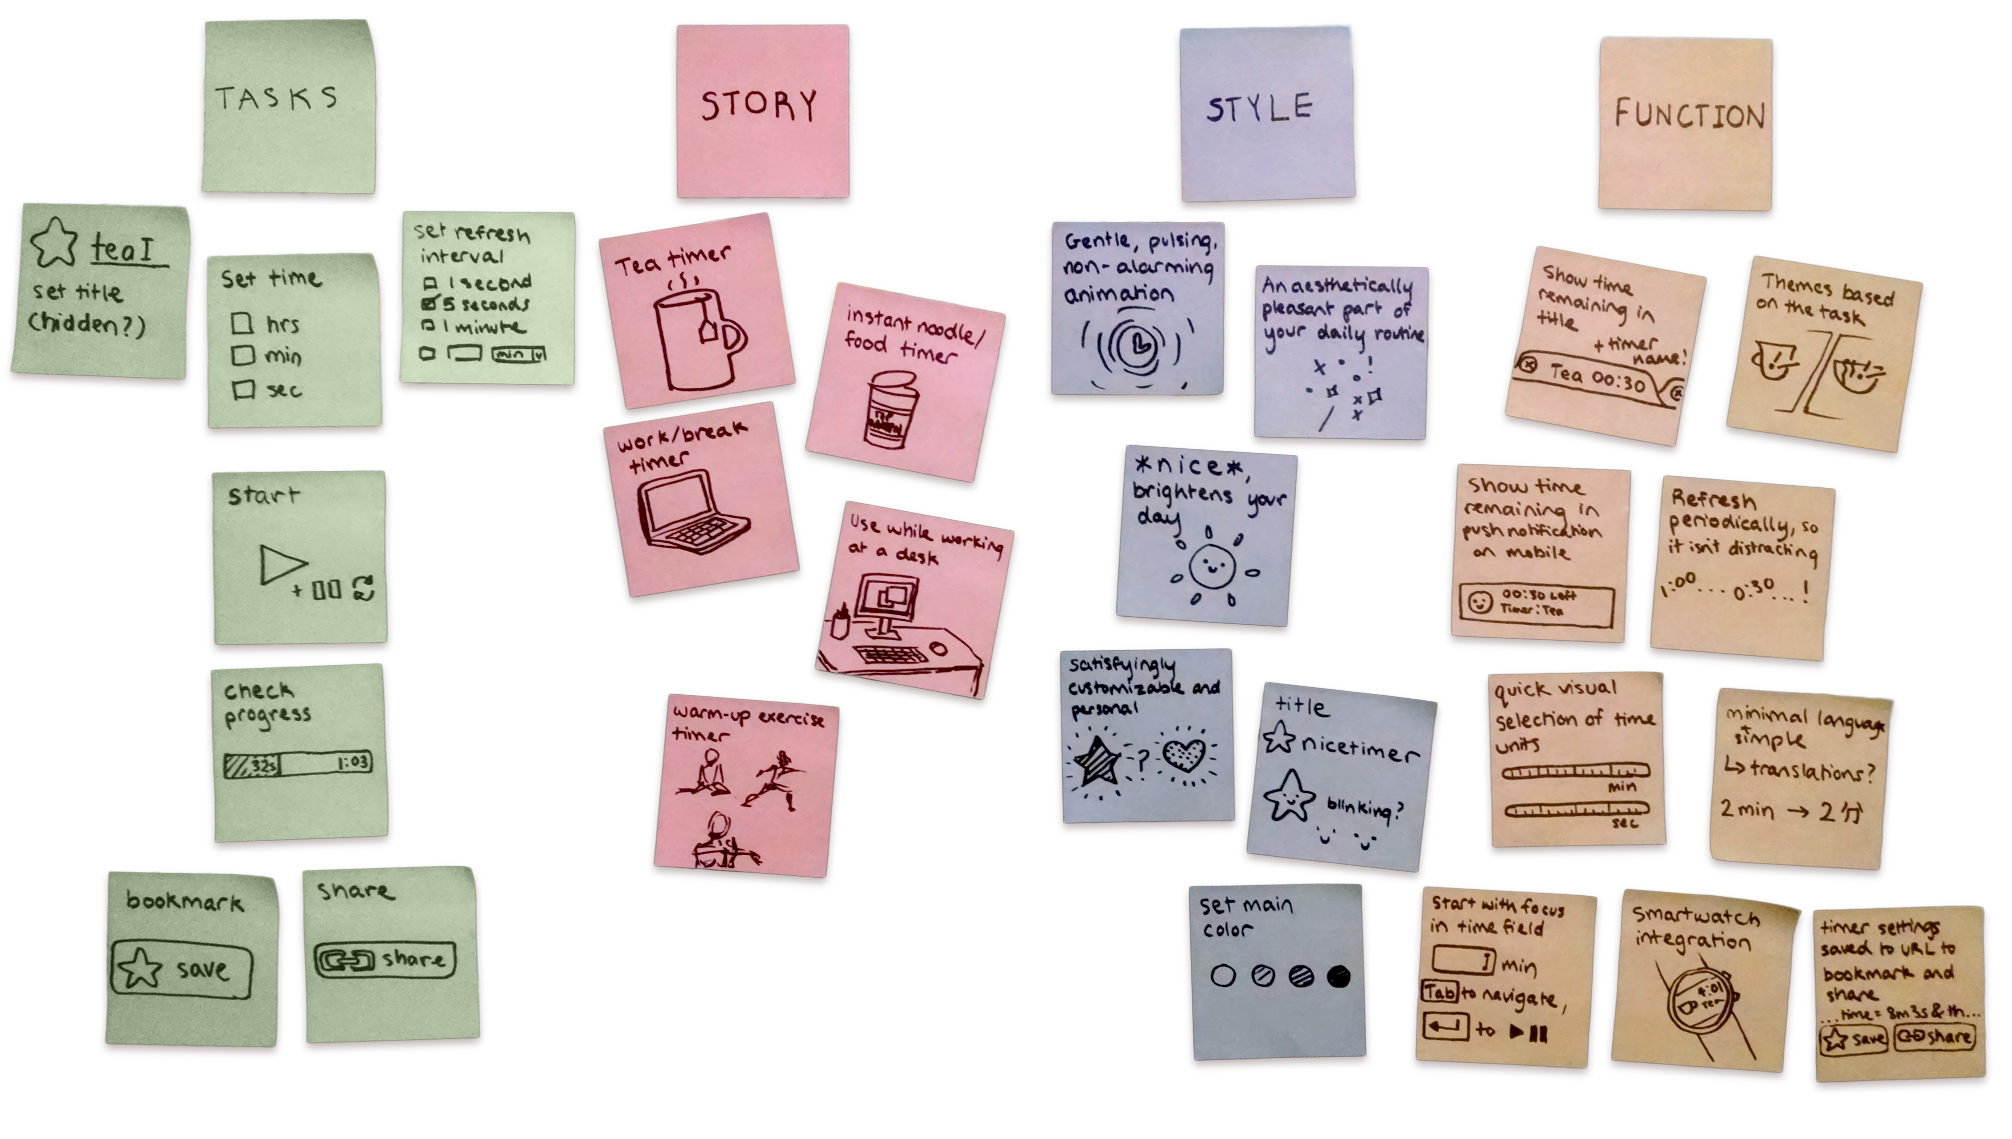 TASKS
tea
set title
(hidden?)
Set time
hrs
min
sec
set refresh
interval
1 second
5 seconds
1 minute
min
start
+
check
progress
32s 1:03
bookmark
save
share
share
STORY
Tea timer
instant noodle/
food timer
work/break
timer
Use while working
at a desk
warm-up exercise
timer
STYLE
Gentle, pulsing,
non-alarming
animation
An aesthetically
pleasant part of
your daily routine
*nice*,
brightens your
day
satisfyingly
customizable and
personal
?
title
nicetimer
blinking?
set main
color
FUNCTION
Show time
remaining in
title
+ timer
name!
Tea 00:30
Themes based
on the task
Show time
remaining in
push notification
on mobile
00:30 Left
Timer: Tea
Refresh
periodically, so
it isn't distracting
1:00... 0:30...!
quick visual
selection of time
units
min
sec
minimal language
+
simple
↳ translations?
2 min → 2分
Start with focus
in time field
min
Tab to navigate,
↵ to
Smartwatch
integration
4:01
Tea
timer settings
saved to URL to
bookmark and
share
...time=8m3s&th...
save share